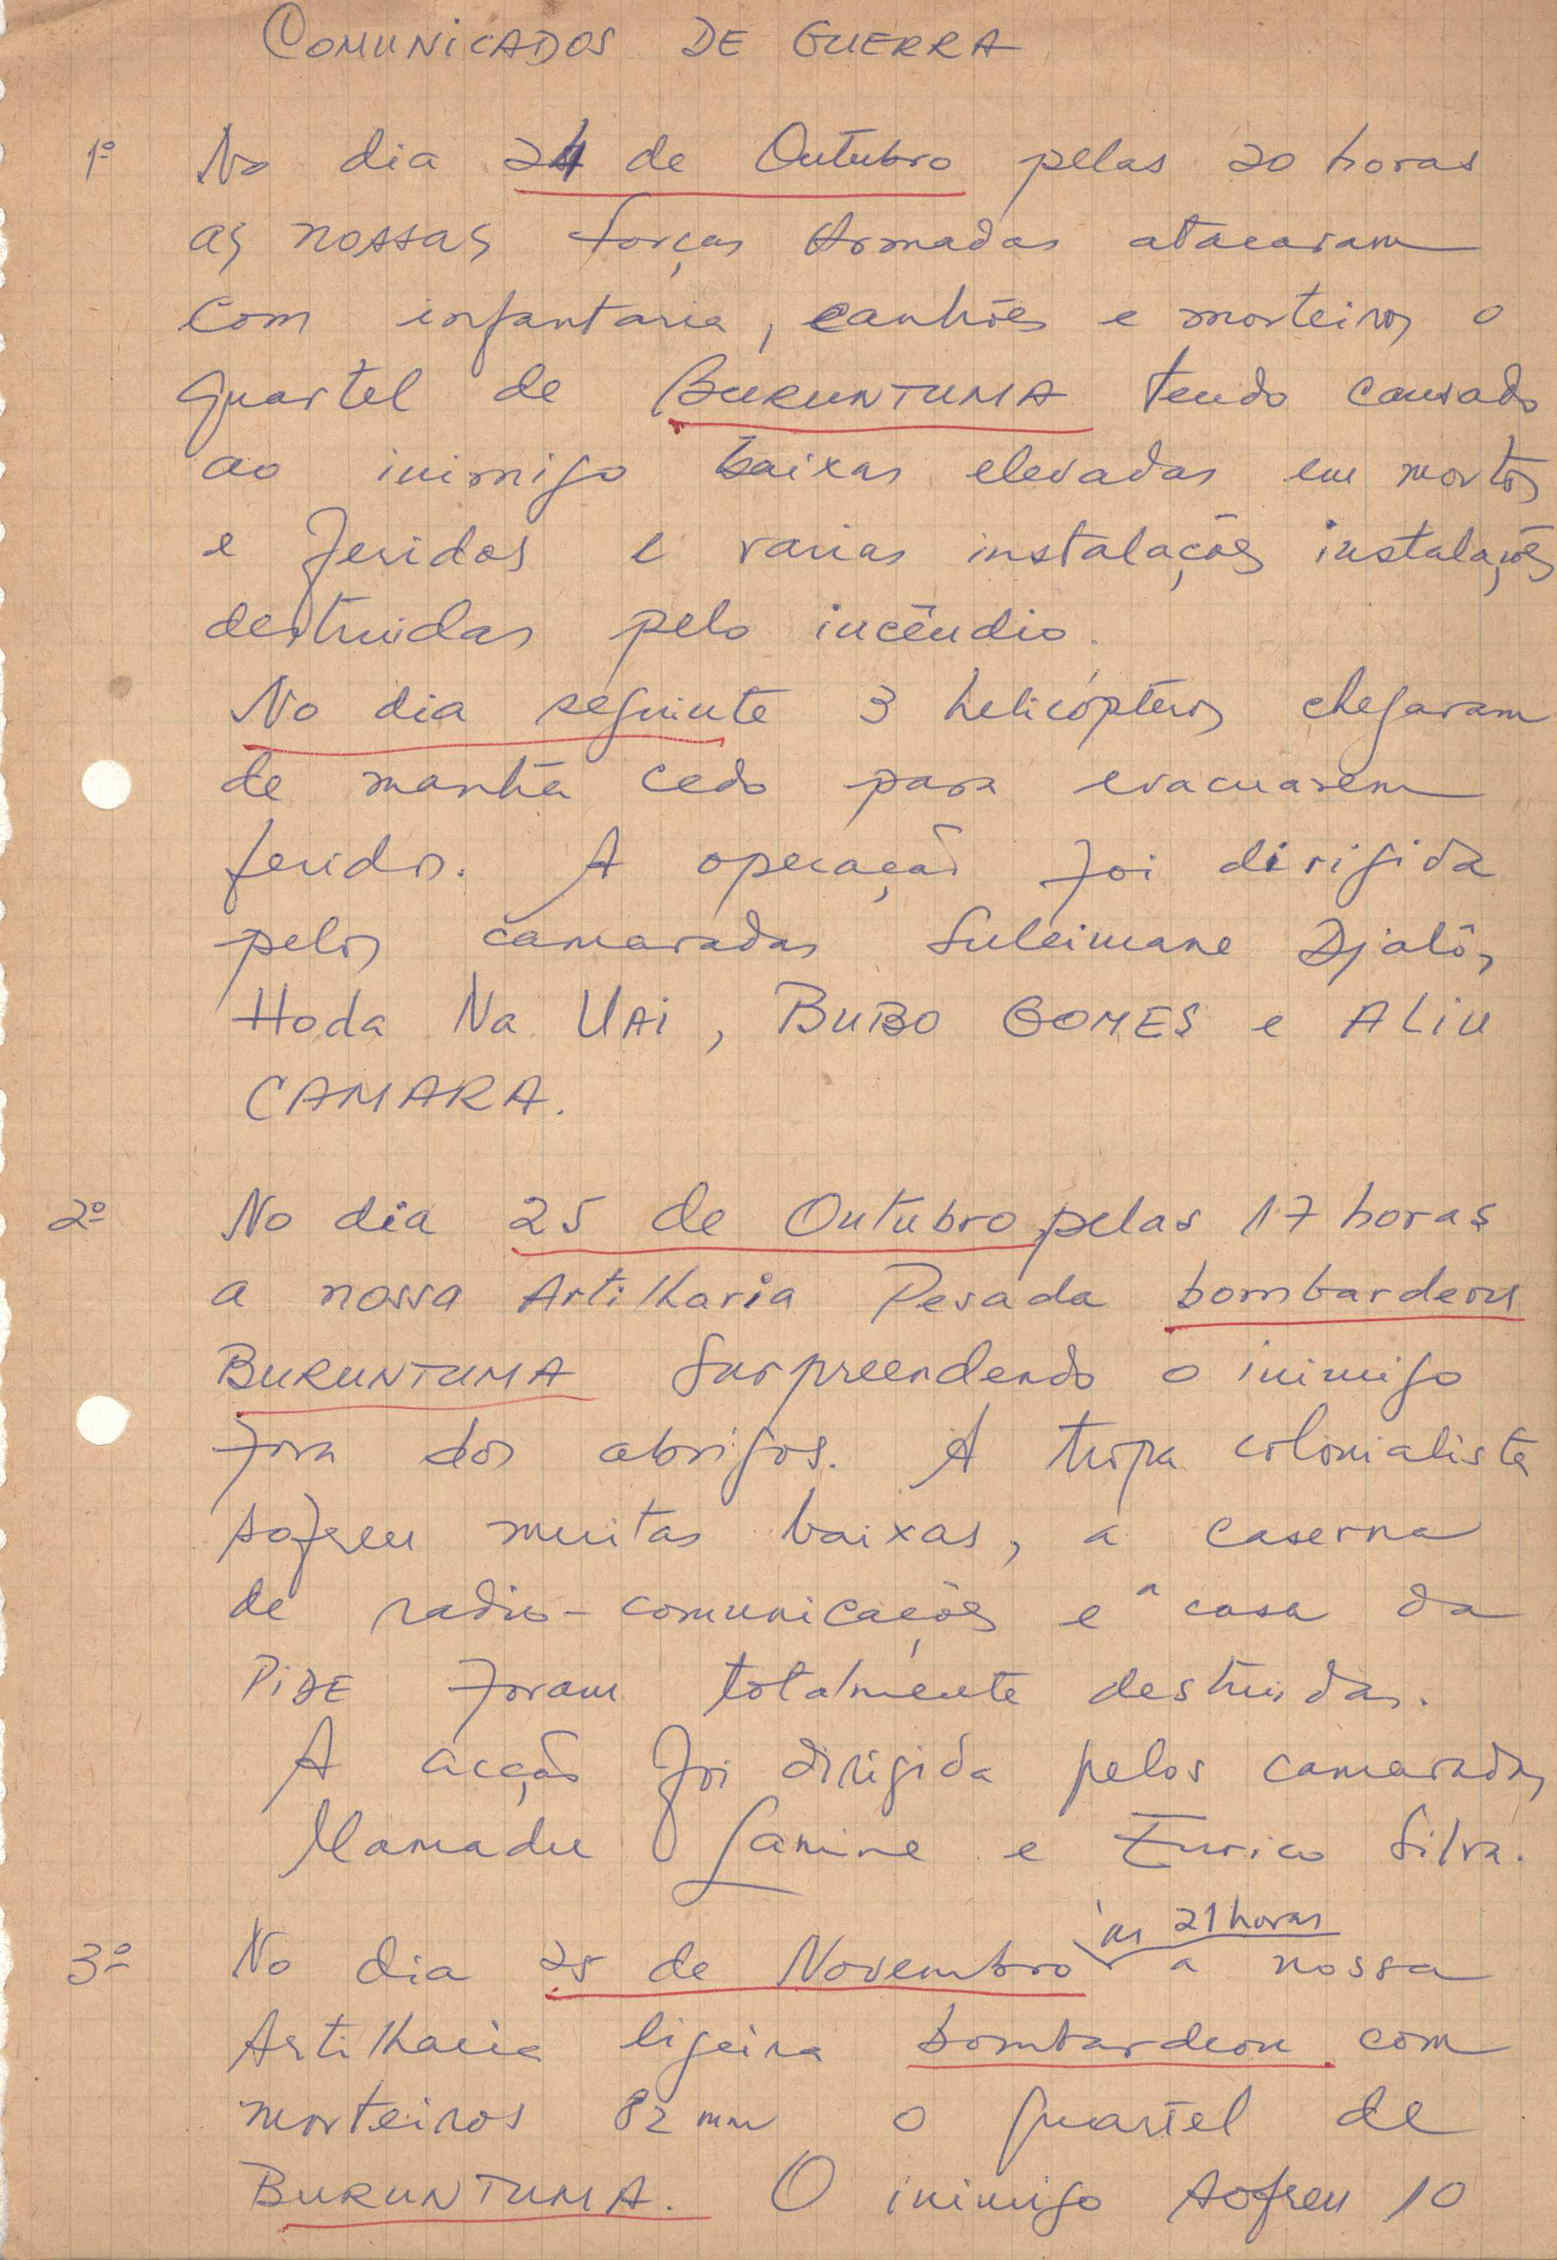 COMUNICADOS DE GUERRA
1º No dia 24 de Outubro pelas 20 horas
as nossas forças Armadas atacaram
com infantaria, canhões e morteiros o
quartel de BURUNTUMA tendo causado
ao inimigo baixas elevadas em mortos
e feridos e varias instalações instalações
destruidas pelo incêndio.
No dia seguinte 3 helicópteros chegaram
de manhã cedo para evacuarem
feridos. A operação foi dirigida
pelos camaradas Suleimane Djaló,
Hoda Na UAi, BUBO GOMES e ALiU
CAMARA.
2º No dia 25 de Outubro, pelas 17 horas
a nossa Artilharia Pesada bombardeou
BURUNTUMA Surpreendendo o inimigo
fora dos abrigos. A tropa colonialista
sofreu muitas baixas, a caserna
de radio-comunicações e a casa da
PiDE foram totalmente destruidas.
A acção foi dirigida pelos camaradas
Mamadu Lamine e Eurico Silva.
às 21 horas
3º No dia 25 de Novembro a nossa
Artilharia ligeira bombardeou com
morteiros 82 mm o quartel de
BURUNTUMA. O inimigo sofreu 10